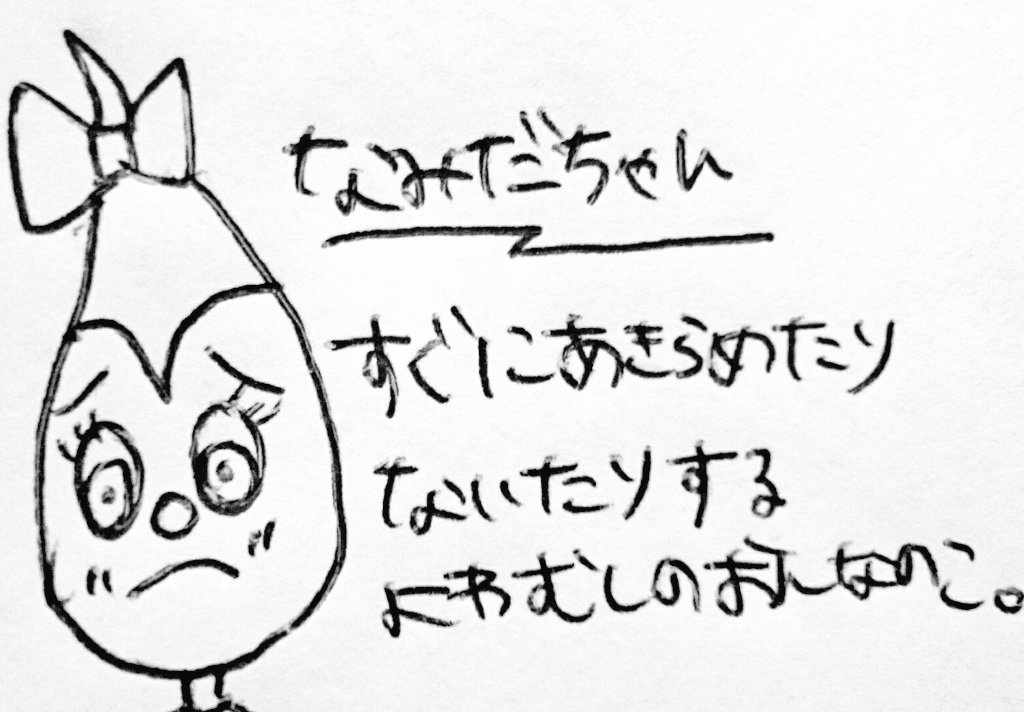 なみだちゃん
すぐにあきらめたり
ないたりする
よわむしのおんなのこ。